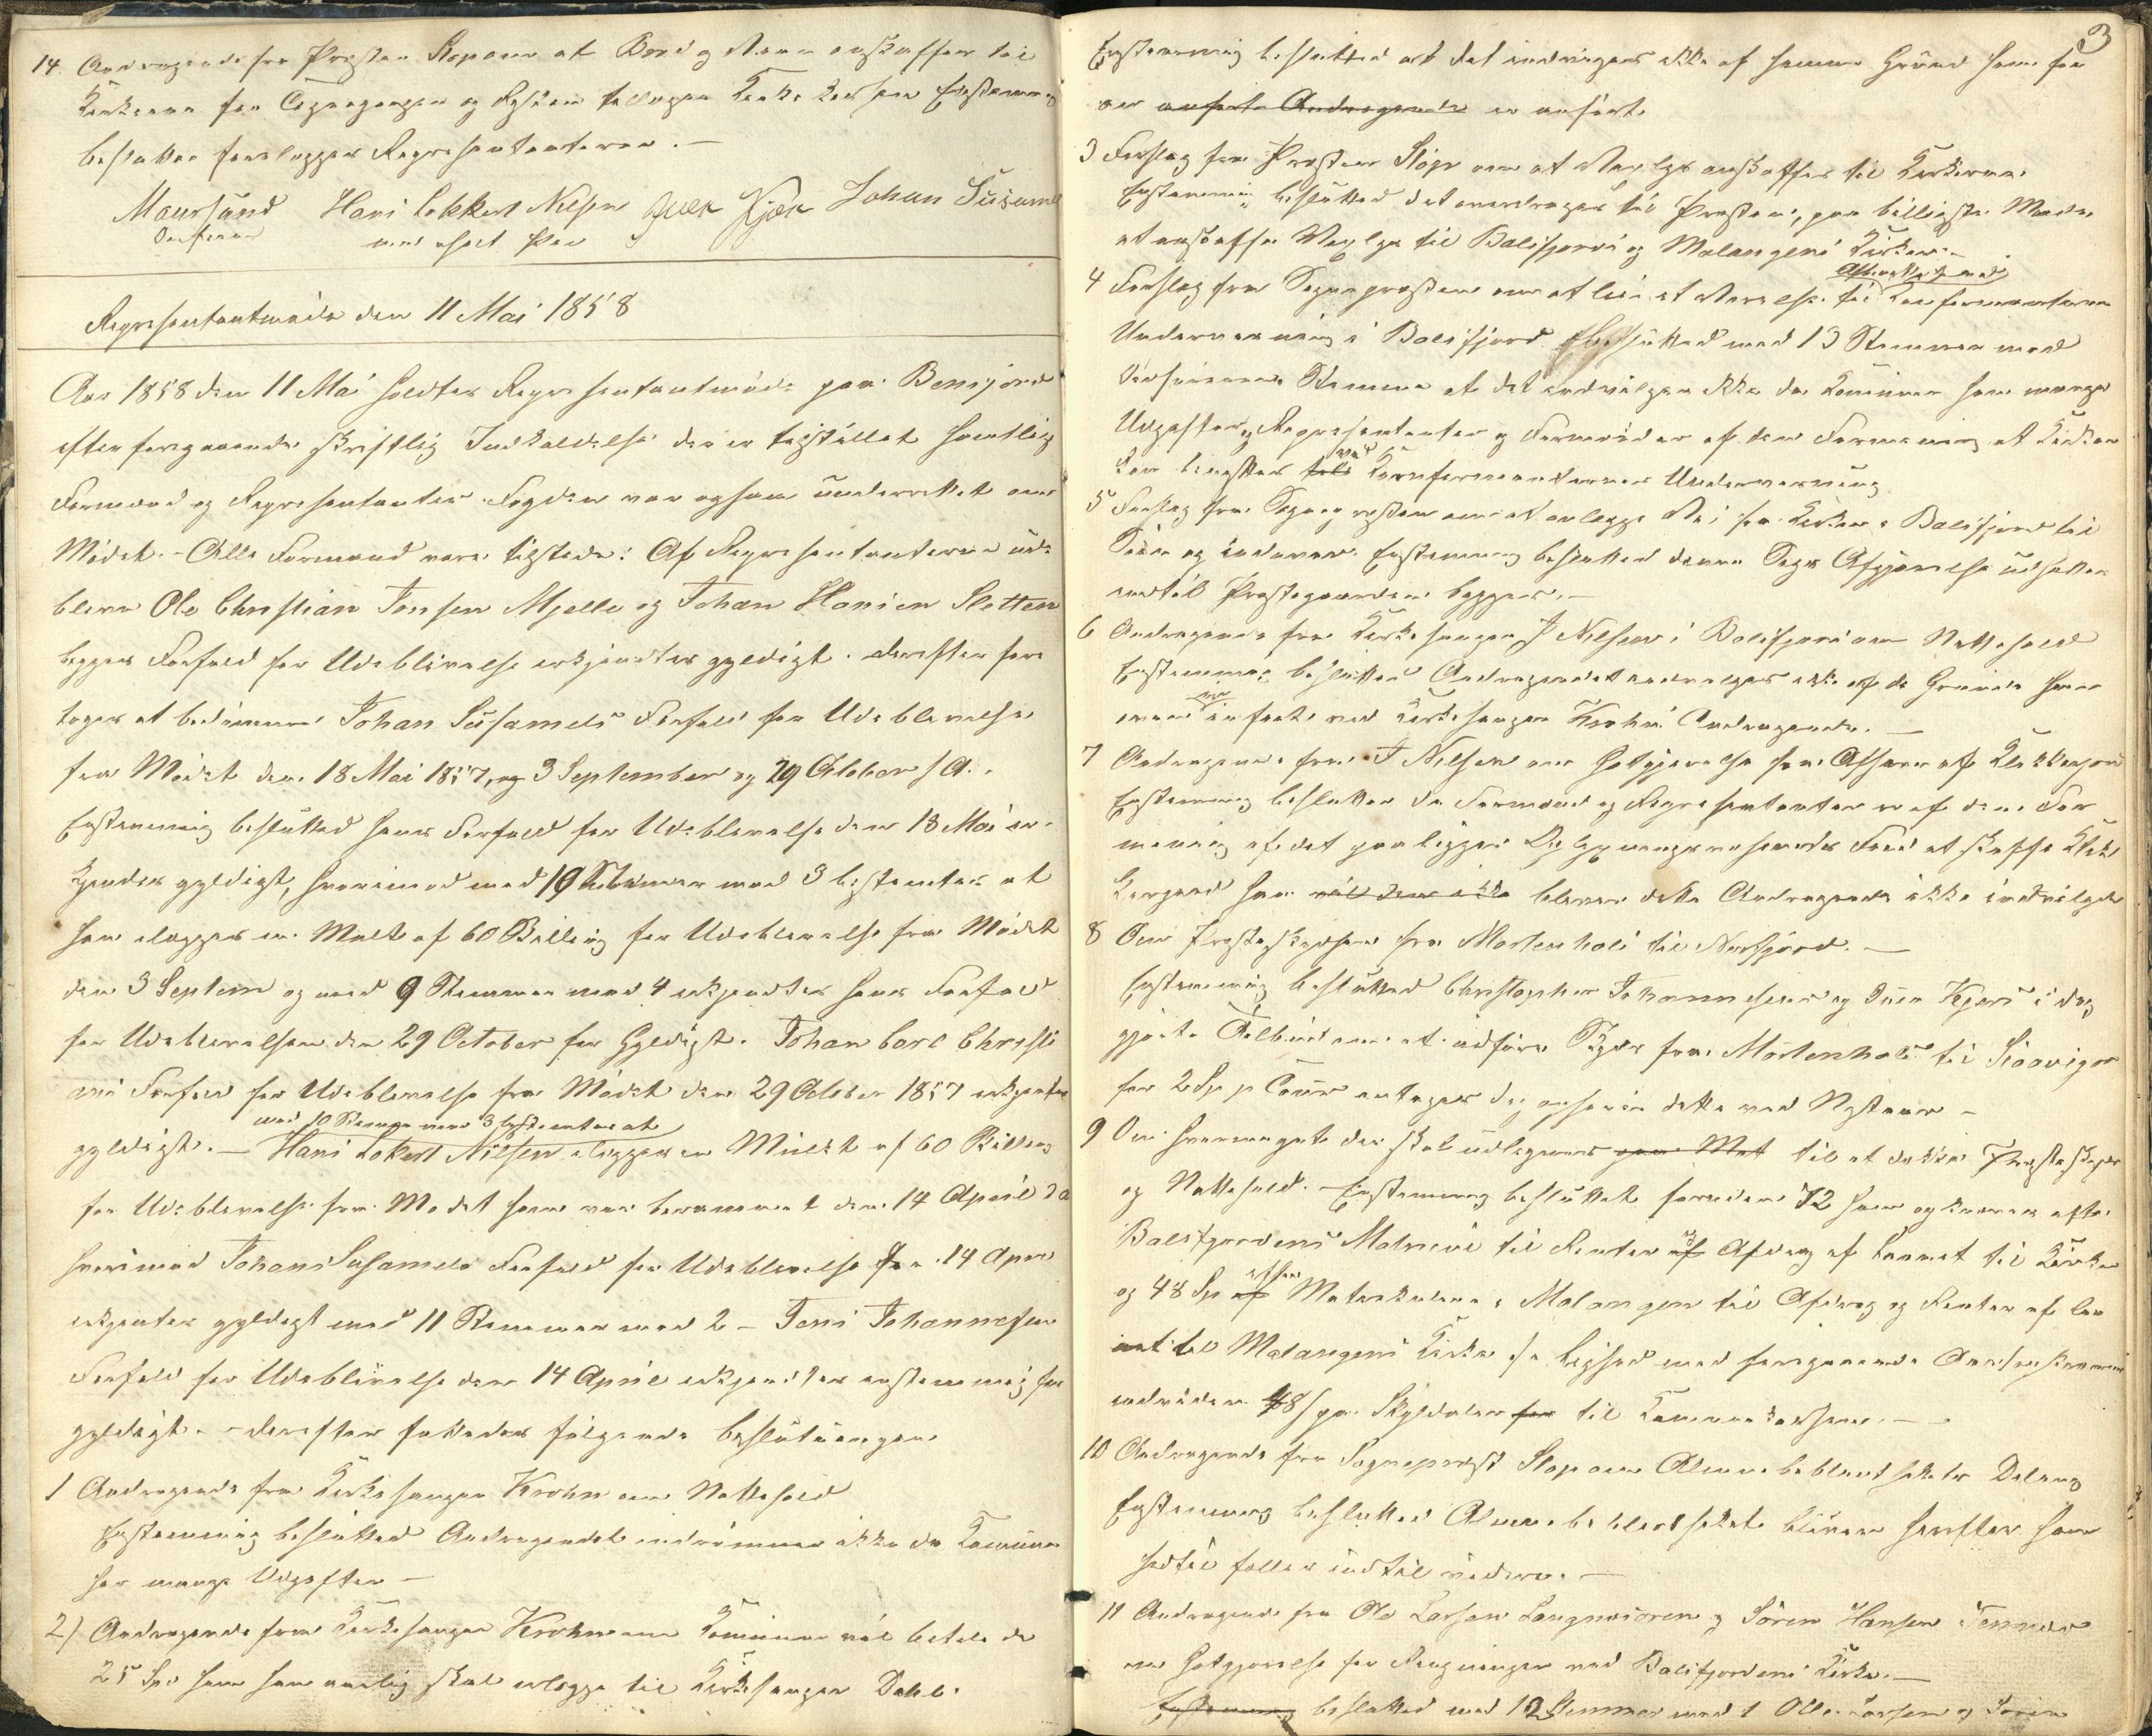 14. Andragende fra Præsten Stop om at Bord og Stoen anskaffes til
Kirkerne for Copengangen og Fonten tillægges Kirkekassen Enstemmig
besluttes forelægges Repræsentanterne. —
Maursund Hans Lokkert Nilsen Peder Kjær Johan Susamel
Ordfører med ført Pen
Repræsentantmöde den 11 Mai 1858
Aar 1858 den 11 Mai holdtes Repræsentantmöde paa Bensjord
efter foregaaende skriftlig Indkaldelse der er tilstillet samtlig
Formænd og Repræsentanter. Fogden var ogsaa underrettet om
Mödet. – Alle Formænd vare tilstede: Af Repræsentanterne ude
bleve Ole Christian Jensen Mjelle og Johan Hansen Sletten
begges Forfald for Udeblivelse erkjendtes gyldigt. derefter fore
toges at bedömme Johan Susamels Forfald for Udeblivelse
fra Mödet den 18 Mai 1857, og 3 September og 29 October s A.
Enstemmig besluttet hans Forfald for Udeblivelse den 18 Mai er-
kjendes gyldigt, hvorimod med 10 Stemmer mod 3 bestemtes at
han ilægges en Mulkt af 60 Skilling for Udeblivelse fra Mödet
den 3 Septem og med 9 Stemmer mod 4 erkjendtes hans Forfald
for Udeblivelsen den 29 October for Gyldigt. Johan Carl Christi
ans Forfald for Udeblivelse fra Mödet den 29 October 1857 erkjendtes
med 10 Stemmer mod 3 bestemtes at
gyldigt. — Hans Lokert Nilsen ilægges en Mulkt af 60 Skilling
for Udeblivelse fra Mödet som var berammet den 14 April d A
hvorimod Johans Susamels Forfald for Udeblivelse den 14 April
erkjentes gyldigt med 11 Stemmer mod 2 – Jens Johannesen
Forfald for Udeblivelse den 14 April erkjendtes enstemmig for
gyldigt. – derefter fattedes fölgende Beslutninger
1 Andragende fra Kirkesanger Krohn om Nattehold
Enstemmig besluttet Andragendet indrömmes ikke da Communen
har mange Udgifter —
2) Andragende fra Kirkesanger Krohn om Communen vil betale de
25 Spd som han aarlig skal erlægge til Kirkesanger Dahl.
3
Enstemmig besluttet at det indvilges ikke af samme Grund som for
an anförte Andragende er anfört.
3 Forslag fra Præsten Stop om at Voxlys anskaffes til Kirkerne.
Enstemmig besluttet det overdrages til Præsten, paa billigste Maade
at anskaffe Voxlys til Balsfjords og Malangens Kirker. —
4 Forslag fra Sognepræsten om at leie et Værelse til Confirmanternes
Undervisning i Balsfjord besluttet med 13 Stemmer mod
Ordförerens Stemme at det indvilges ikke da Communen har mange
Udgifter, og Repræsentanter og Formænd er af den Formening at Kirken
ved
kan benyttes til Konfirmanternes Undervisning
5 Forslag fra Sognepræsten om at anlægge Vei fra Kirken i Balsfjord til
Söen og indover. Enstemmig besluttet denne Sags Afgjörelse udsættes
indtil Præstegaarden bygges. —
6 Andragende fra Kirkesanger J Nilsen i Balsfjord om Nattehold
Enstemmig besluttet Andragendet indvilges ikke af de Grunde som
er anfört ved Kirkesanger Krohns Andragende. —
7 Andragende fra J Nilsen om Godtgjörelse for Afsavn af Klokkerjord
Enstemmig besluttes da Formænd og Repræsentanter er af den For
mening at det paaligger Oplysningsvæsenets Fond at skaffe Klok
kergaard saa vil den ikke bliver dette Andragende ikke indvilget
8 Om Præsteskydsen fra Mortenhals til Nordfjord. —
Enstemmig besluttet Christopher Johannesens og Due Kjers i dag
gjorte Tilbud om at udföre Skyds fra Mortenhals til Storvigen
for 2 Sp p Tour antages dog ansees dette ved Nystuen –
9 Om hvormeget der skal udlignes paa Mat til at dække Præsteskyds
og Nattehold. – Enstemmig besluttet foruden 72 som og kræves efter
Balsfjordens Matricul til Renter og Afdrag af Laanet til Kirken
efter
og 48 Sp af Matrikulen i Malangen til Afdrag og Renter af Laa
net til Malangens Kirke i Lighed med foregaaende Aar
endvidere 48 s pr Skylddaler for til Communekassen. —
10 Andragende fra Sognepræst Stop om Almueboblandsaket Deling
Enstemmig besluttet bliver herefter som
hedtil fælles indtil videre. —
11 Andragende fra Ole Larsen Langnesoren og Sören Hansen Tennes
om Godtgjörelse for Rengningen ved Balsfjordens Kirke. —
Enstemmig besluttet med 12 Stemmer mod 1 Olle Larsen og Sören